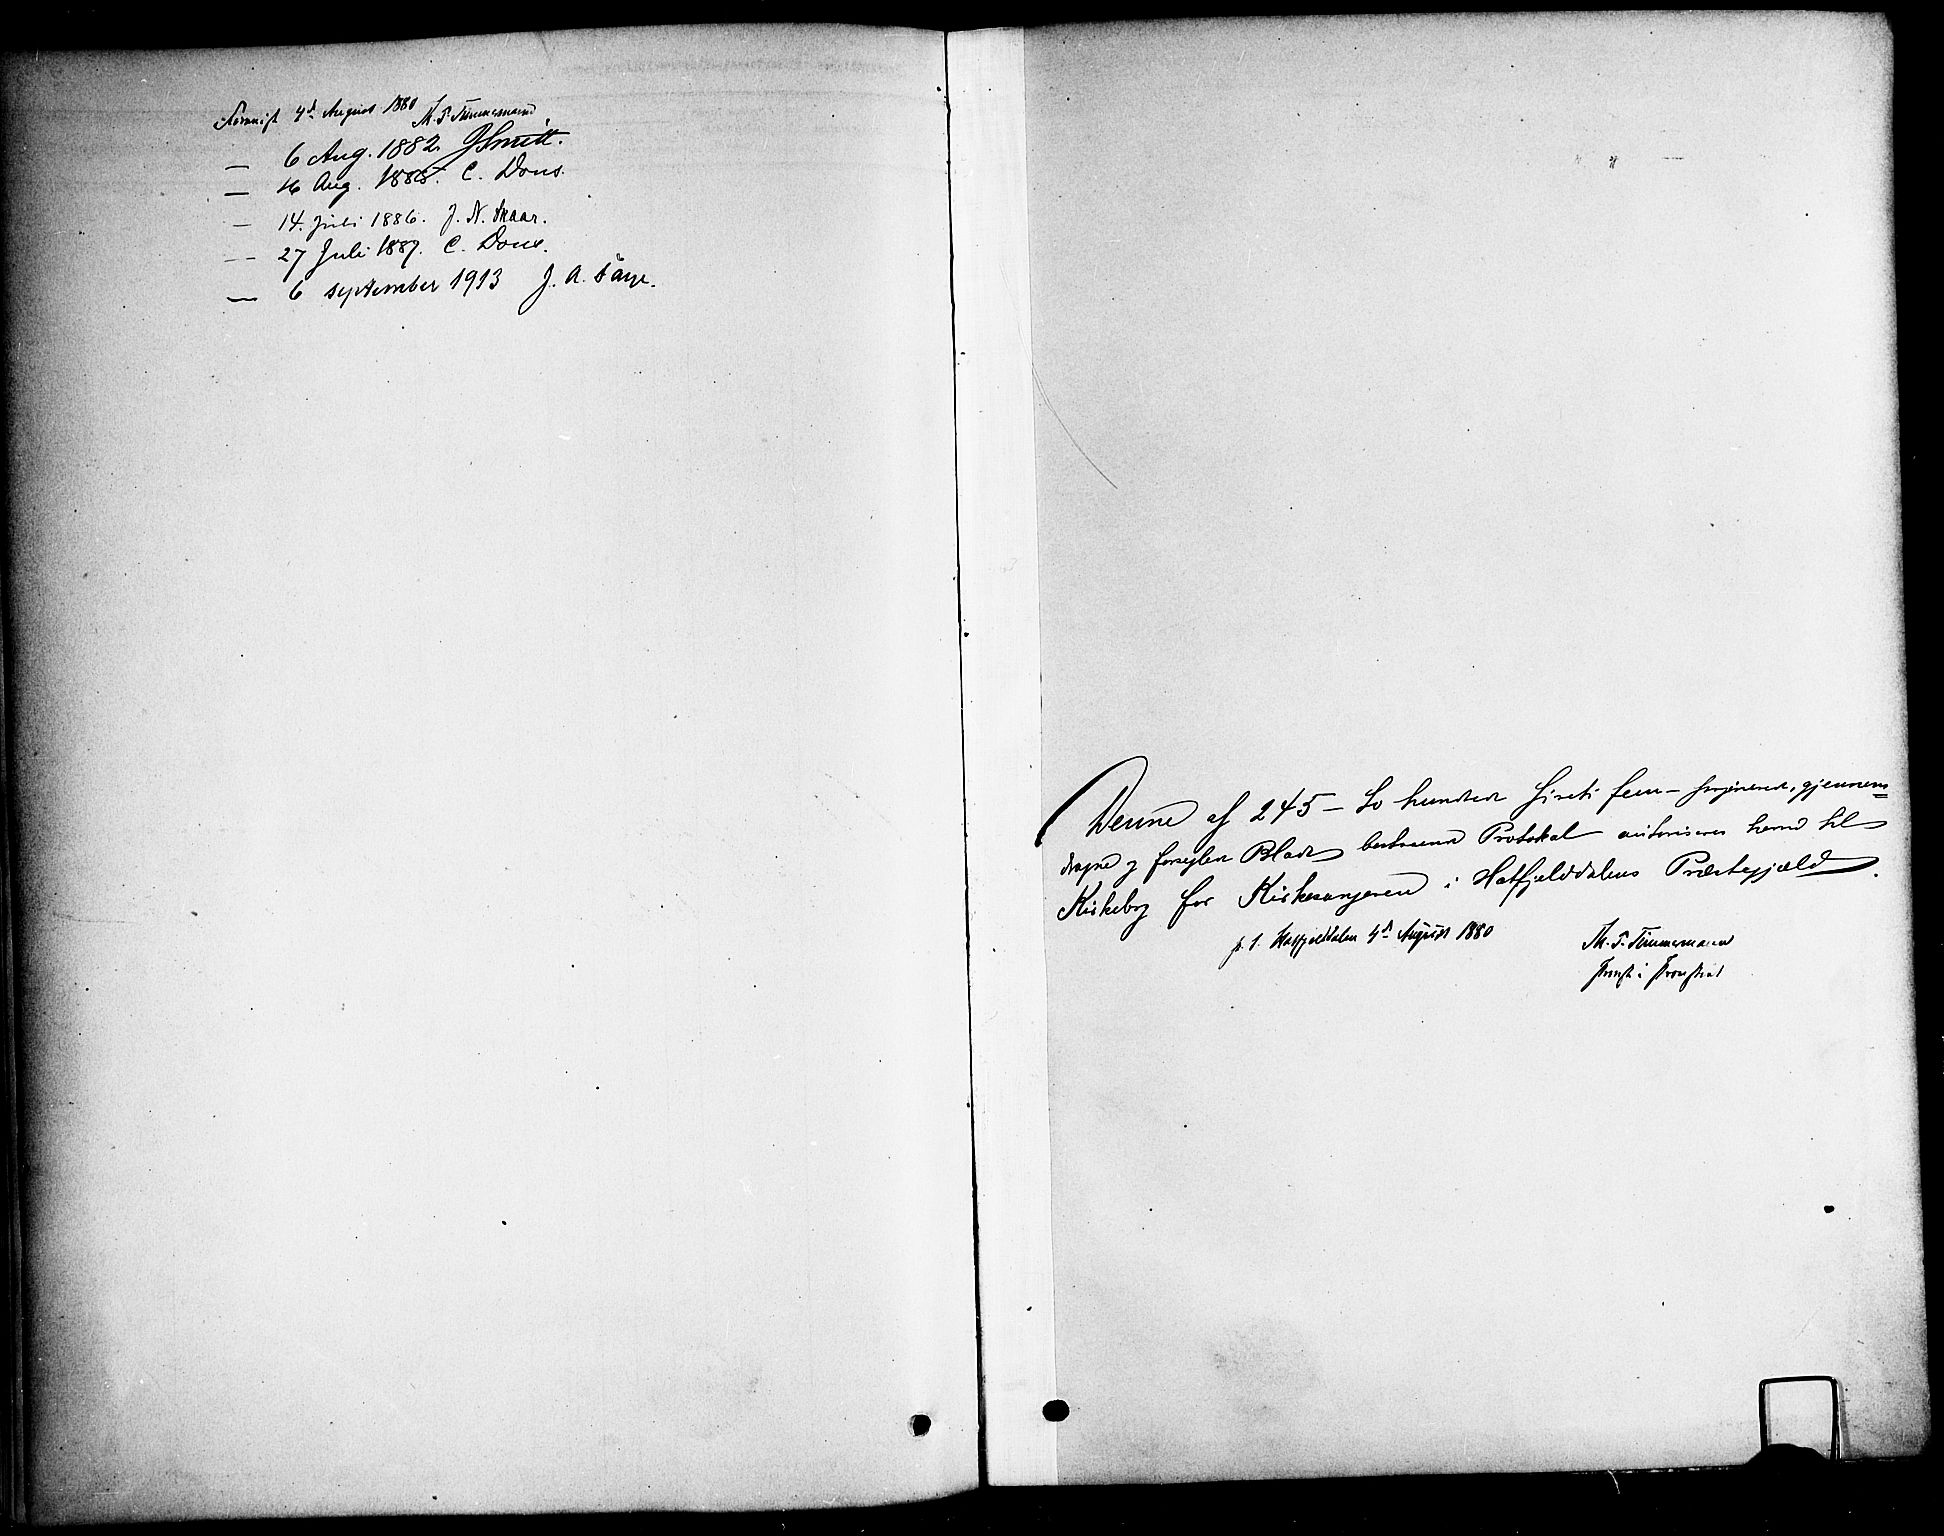 Fremvist 4de August 1880 M. T. Timmermann
— 6 Aug. 1882. JSmitt.
— 16 Aug. 1885. C. Dons.
— 14. Juli 1886. J. N. Skaar.
— 27 Juli 1887. C. Dons.
— 6 september 1913 J. A.
Denne af 245 – To hundrede firti fem – paginerede, gjennem=
dragne og forseglede Blade bestaaende Protokol autoriseres herved til
Kirkebog for Kirkesangeren i Hatfjelddalens Præstegjæld.
p. t. Hatfjelddalen 4de August 1880 M. T. Timmermann
Provst i Provstiet